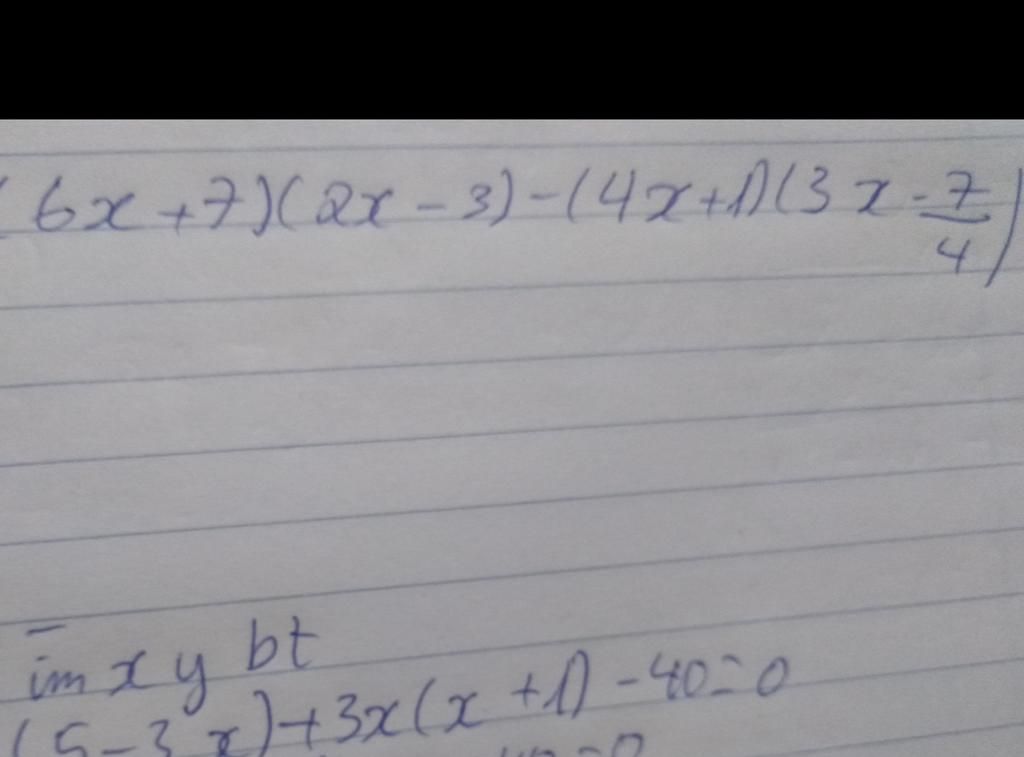 (6x+7)(2x-3)-(4x+1)(3x-7/4)
im x y bt
(5-3x)+3x(x+1)-40=0
=0